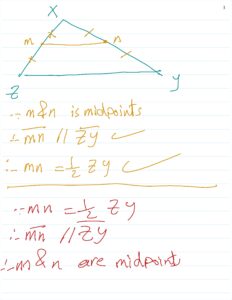 1
X
m n
Z y
∵ m&n is midpoints
∴ mn // zy ✓
∴ mn = 1/2 zy ✓
∵ mn = 1/2 zy
∴ mn // zy
∴ m & n are midpoint